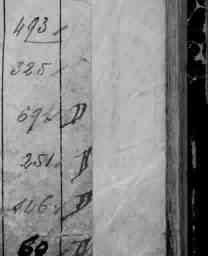 493
325
692 D
251 D
126 D
60 D